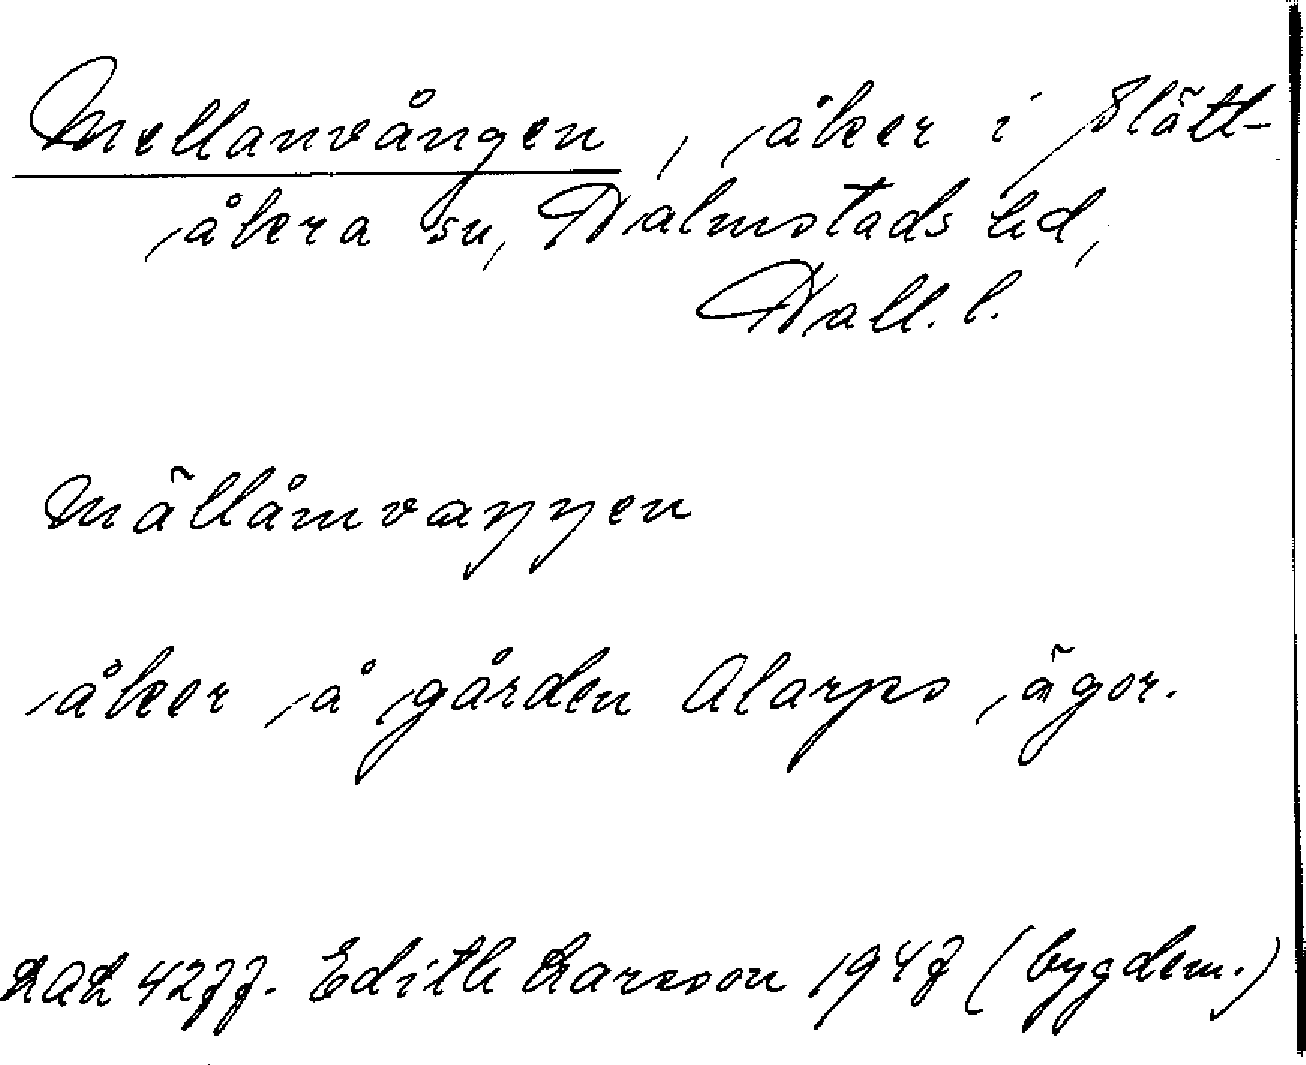 Mellanvången, åker i Slätt-
åkra sn, Halmstads hd,
Hall. l.
Mällåmvaŋŋen
åker å gården Alarps ägor.
LAL 4277. Edith Larsson 1947 (bygdem.)